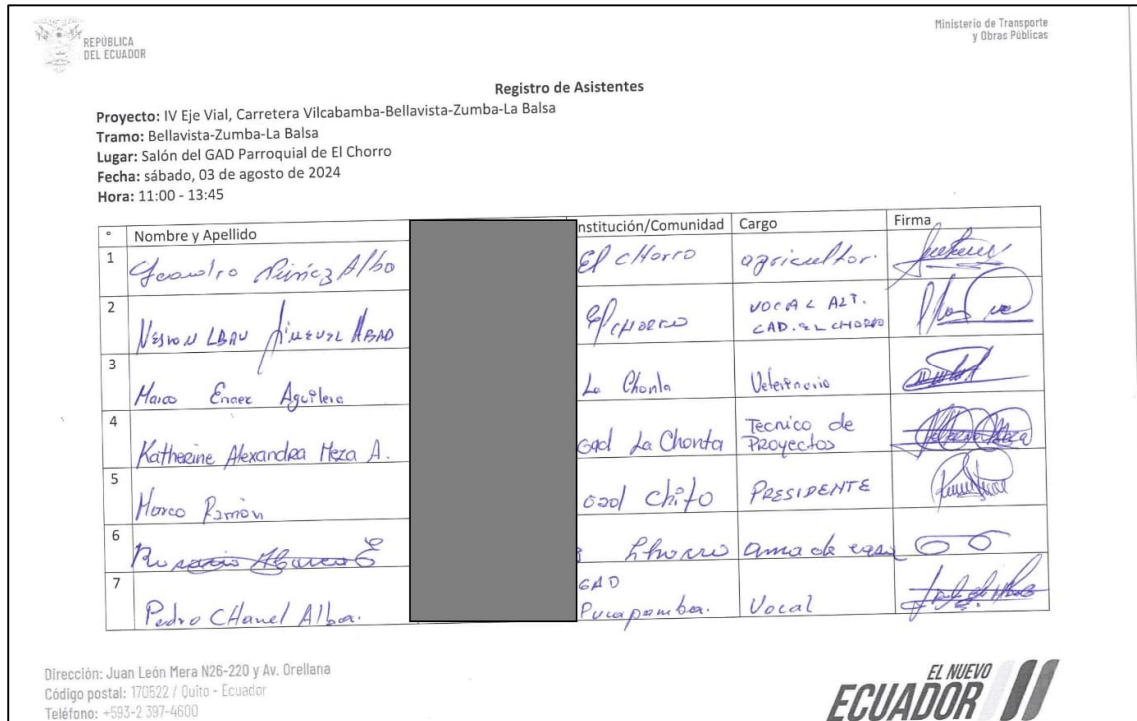 REPÚBLICA
DEL ECUADOR
Ministerio de Transporte
y Obras Públicas
Registro de Asistentes
Proyecto: IV Eje Vial, Carretera Vilcabamba-Bellavista-Zumba-La Balsa
Tramo: Bellavista-Zumba-La Balsa
Lugar: Salón del GAD Parroquial de El Chorro
Fecha: sábado, 03 de agosto de 2024
Hora: 11:00 - 13:45
° Nombre y Apellido nstitución/Comunidad Cargo Firma
1 Albo El cHorro agricultor.
2 El cHorro VOCAL ALT.
GAD. EL CHORRO
3 Marco Aguilera La Chonta Veterinario
4 Katherine Alexandra Meza A. Gad La Chonta Tecnico de
Proyectos
5 Marco Ramón Gad Chito PRESIDENTE
6 Chorro ama de casa
7 Pedro CHamel Alba. GAD
Pucapamba. Vocal
Dirección: Juan León Mera N26-220 y Av. Orellana
Código postal: 170522 / Quito - Ecuador
Teléfono: +593-2 397-4600
EL NUEVO
ECUADOR